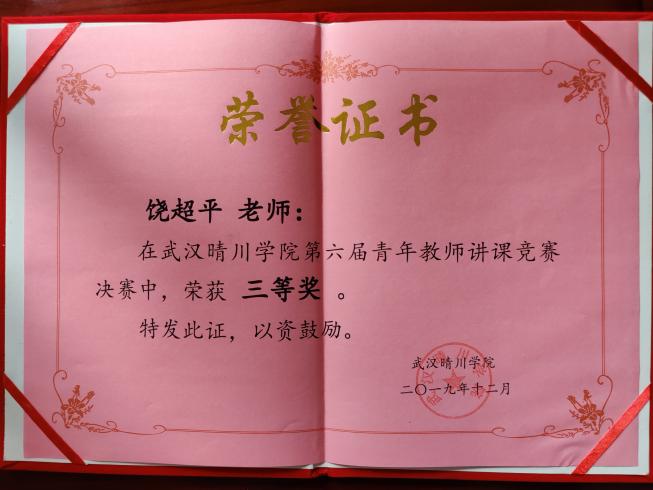 荣誉证书
饶超平 老师：
在武汉晴川学院第六届青年教师讲课竞赛
决赛中，荣获 三等奖 。
特发此证，以资鼓励。
武汉晴川学院
二〇一九年十二月
武汉晴川学院